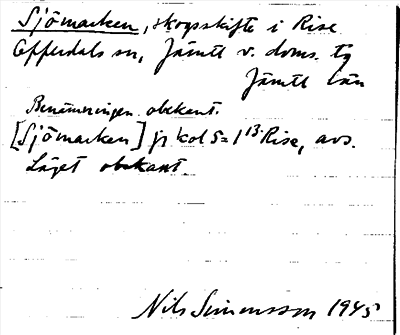 Sjömarken, skogsskifte i Rise
Offerdals sn, Jämtl v. doms. tg
Jämtl län
Benämningen obekant.
[Sjömarken] jr kol 5=1 13. Rise, avs.
Läget obekant
Nils Simonsson 1945